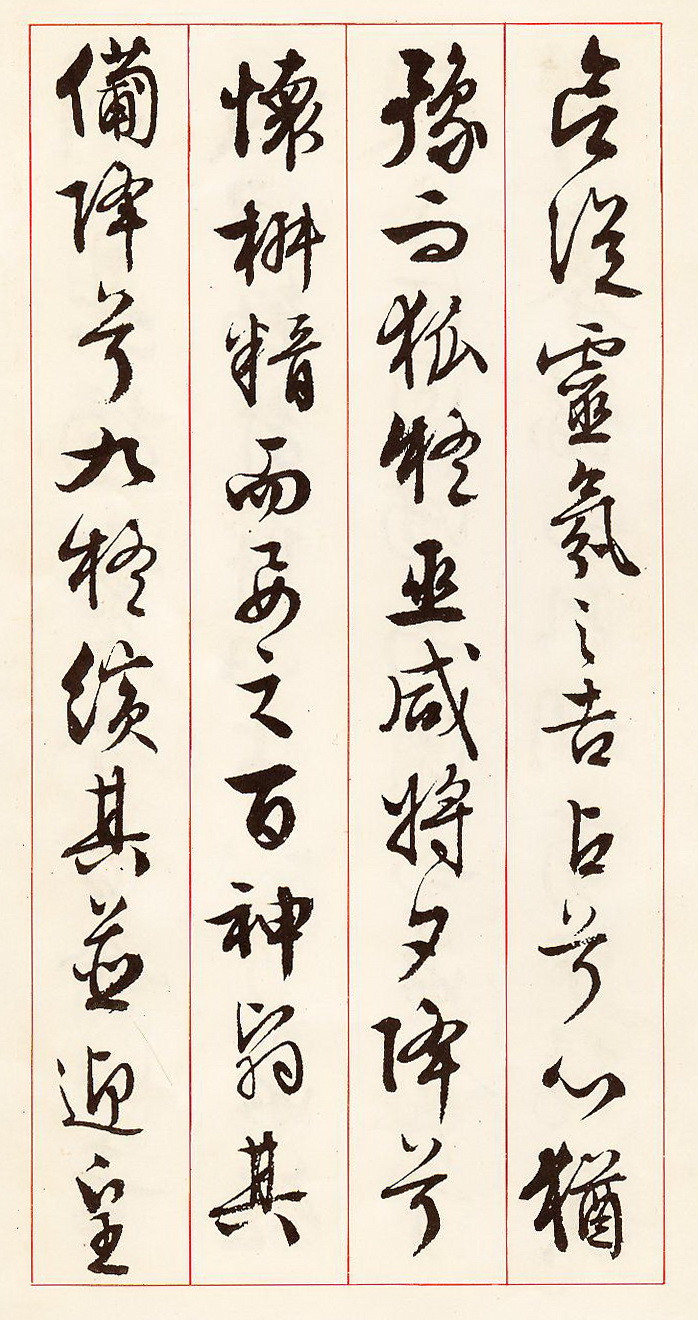 從靈氛之吉占兮心猶
豫而狐疑巫咸將夕降兮
懷椒糈而要之百神翳其
備降兮九疑繽其並迎皇